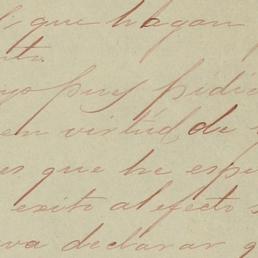 que hagan
pues pidie
en virtud de
es que he espe
exito al efecto s
va declarar q